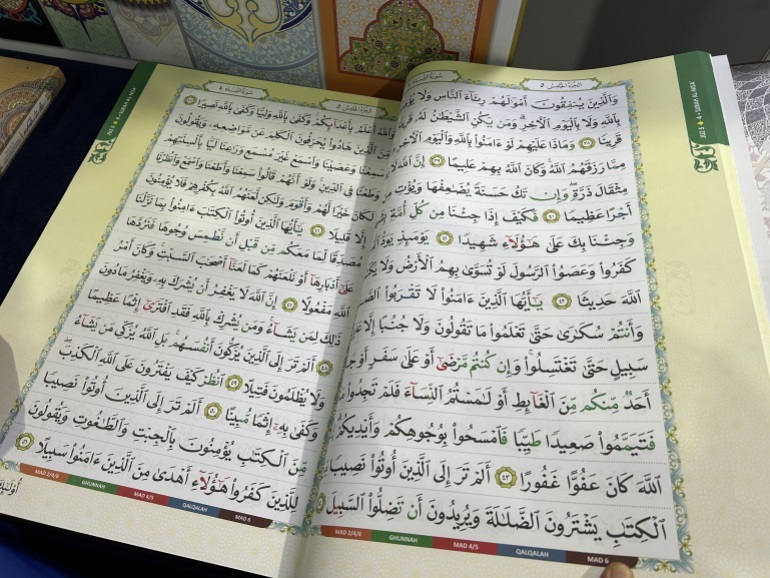 الجزء الخامس ٥
سورة النساء ٤
وَالَّذِينَ يُنفِقُونَ أَمْوَٰلَهُمْ رِئَآءَ النَّاسِ وَلَا
بِاللَّهِ وَلَا بِالْيَوْمِ الْءَاخِرِ ۗ وَمَن يَكُنِ الشَّيْطَٰنُ لَهُۥ
قَرِينًا ٣٨ وَمَاذَا عَلَيْهِمْ لَوْ ءَامَنُوا۟ بِاللَّهِ وَالْيَوْمِ الْءَاخِرِ
مِمَّا رَزَقَهُمُ اللَّهُ ۚ وَكَانَ اللَّهُ بِهِمْ عَلِيمًا ٣٩ إِنَّ اللَّهَ
مِثْقَالَ ذَرَّةٍ ۖ وَإِن تَكُ حَسَنَةً يُضَٰعِفْهَا وَيُؤْتِ
أَجْرًا عَظِيمًا ٤٠ فَكَيْفَ إِذَا جِئْنَا مِن كُلِّ أُمَّةٍۭ
وَجِئْنَا بِكَ عَلَىٰ هَٰٓؤُلَآءِ شَهِيدًا ٤١ يَوْمَئِذٍ يَوَدُّ
كَفَرُوا۟ وَعَصَوُا۟ الرَّسُولَ لَوْ تُسَوَّىٰ بِهِمُ الْأَرْضُ وَلَا
اللَّهَ حَدِيثًا ٤٢ يَٰٓأَيُّهَا الَّذِينَ ءَامَنُوا۟ لَا تَقْرَبُوا۟
وَأَنتُمْ سُكَٰرَىٰ حَتَّىٰ تَعْلَمُوا۟ مَا تَقُولُونَ وَلَا جُنُبًا إِلَّا
سَبِيلٍ حَتَّىٰ تَغْتَسِلُوا۟ ۚ وَإِن كُنتُم مَّرْضَىٰٓ أَوْ عَلَىٰ سَفَرٍ أَوْ
أَحَدٌ مِّنكُم مِّنَ الْغَآئِطِ أَوْ لَٰمَسْتُمُ النِّسَآءَ فَلَمْ تَجِدُوا۟
فَتَيَمَّمُوا۟ صَعِيدًا طَيِّبًا فَامْسَحُوا۟ بِوُجُوهِكُمْ وَأَيْدِيكُمْ
اللَّهَ كَانَ عَفُوًّا غَفُورًا ٤٣ أَلَمْ تَرَ إِلَى الَّذِينَ أُوتُوا۟ نَصِيبًا
الْكِتَٰبِ يَشْتَرُونَ الضَّلَٰلَةَ وَيُرِيدُونَ أَن تَضِلُّوا۟ السَّبِيلَ
MAD 2/4/6 GHUNNAH MAD 4/5 QALQALAH MAD 6
JUZ 5 4 - SURAH AL-NISA'
الجزء الخامس ٥
سورة النساء ٤
وَاللَّهُ أَعْلَمُ بِأَعْدَآئِكُمْ ۚ وَكَفَىٰ بِاللَّهِ وَلِيًّا وَكَفَىٰ بِاللَّهِ نَصِيرًا ٤٥
مِّنَ الَّذِينَ هَادُوا۟ يُحَرِّفُونَ الْكَلِمَ عَن مَّوَاضِعِهِۦ وَيَقُولُونَ
سَمِعْنَا وَعَصَيْنَا وَاسْمَعْ غَيْرَ مُسْمَعٍ وَرَٰعِنَا لَيًّۢا بِأَلْسِنَتِهِمْ
وَطَعْنًا فِى الدِّينِ ۚ وَلَوْ أَنَّهُمْ قَالُوا۟ سَمِعْنَا وَأَطَعْنَا وَاسْمَعْ وَانظُرْنَا
لَكَانَ خَيْرًا لَّهُمْ وَأَقْوَمَ وَلَٰكِن لَّعَنَهُمُ اللَّهُ بِكُفْرِهِمْ فَلَا يُؤْمِنُونَ
إِلَّا قَلِيلًا ٤٦ يَٰٓأَيُّهَا الَّذِينَ أُوتُوا۟ الْكِتَٰبَ ءَامِنُوا۟ بِمَا نَزَّلْنَا
مُصَدِّقًا لِّمَا مَعَكُم مِّن قَبْلِ أَن نَّطْمِسَ وُجُوهًا فَنَرُدَّهَا
عَلَىٰٓ أَدْبَارِهَآ أَوْ نَلْعَنَهُمْ كَمَا لَعَنَّآ أَصْحَٰبَ السَّبْتِ ۚ وَكَانَ أَمْرُ
اللَّهِ مَفْعُولًا ٤٧ إِنَّ اللَّهَ لَا يَغْفِرُ أَن يُشْرَكَ بِهِۦ وَيَغْفِرُ مَا دُونَ
ذَٰلِكَ لِمَن يَشَآءُ ۚ وَمَن يُشْرِكْ بِاللَّهِ فَقَدِ افْتَرَىٰٓ إِثْمًا عَظِيمًا
٤٨ أَلَمْ تَرَ إِلَى الَّذِينَ يُزَكُّونَ أَنفُسَهُم ۚ بَلِ اللَّهُ يُزَكِّى مَن يَشَآءُ
وَلَا يُظْلَمُونَ فَتِيلًا ٤٩ انظُرْ كَيْفَ يَفْتَرُونَ عَلَى اللَّهِ الْكَذِبَ ۖ
وَكَفَىٰ بِهِۦٓ إِثْمًا مُّبِينًا ٥٠ أَلَمْ تَرَ إِلَى الَّذِينَ أُوتُوا۟ نَصِيبًا
مِّنَ الْكِتَٰبِ يُؤْمِنُونَ بِالْجِبْتِ وَالطَّٰغُوتِ وَيَقُولُونَ
لِلَّذِينَ كَفَرُوا۟ هَٰٓؤُلَآءِ أَهْدَىٰ مِنَ الَّذِينَ ءَامَنُوا۟ سَبِيلًا ٥١
MAD 2/4/6 GHUNNAH MAD 4/5 QALQALAH MAD 6
JUZ 5 4 - SURAH AL-NISA'